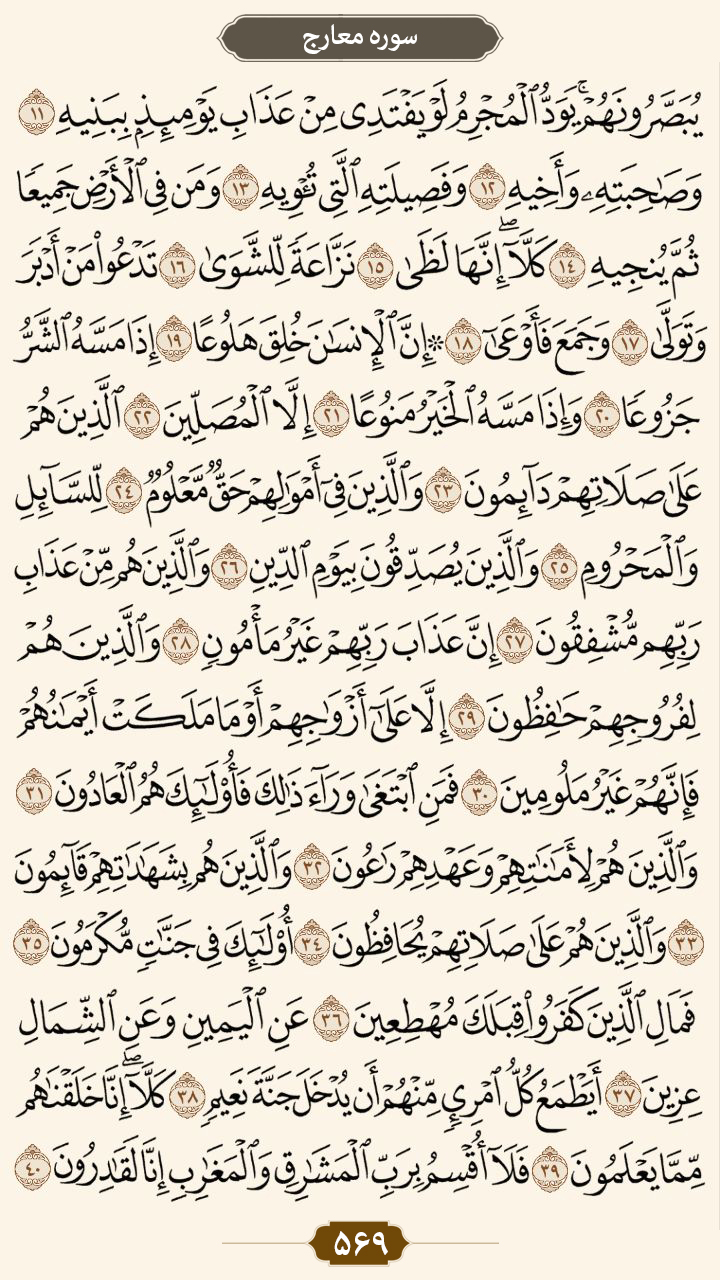 سوره معارج
يُبَصَّرُونَهُمْ ۚ يَوَدُّ ٱلْمُجْرِمُ لَوْ يَفْتَدِى مِنْ عَذَابِ يَوْمِئِذٍۭ بِبَنِيهِ ١١
وَصَـٰحِبَتِهِۦ وَأَخِيهِ ١٢ وَفَصِيلَتِهِ ٱلَّتِى تُـْٔوِيهِ ١٣ وَمَن فِى ٱلْأَرْضِ جَمِيعًا
ثُمَّ يُنجِيهِ ١٤ كَلَّآ ۖ إِنَّهَا لَظَىٰ ١٥ نَزَّاعَةً لِّلشَّوَىٰ ١٦ تَدْعُوا۟ مَنْ أَدْبَرَ
وَتَوَلَّىٰ ١٧ وَجَمَعَ فَأَوْعَىٰٓ ١٨ ۞ إِنَّ ٱلْإِنسَـٰنَ خُلِقَ هَلُوعًا ١٩ إِذَا مَسَّهُ ٱلشَّرُّ
جَزُوعًا ٢٠ وَإِذَا مَسَّهُ ٱلْخَيْرُ مَنُوعًا ٢١ إِلَّا ٱلْمُصَلِّينَ ٢٢ ٱلَّذِينَ هُمْ
عَلَىٰ صَلَاتِهِمْ دَآئِمُونَ ٢٣ وَٱلَّذِينَ فِىٓ أَمْوَٰلِهِمْ حَقٌّ مَّعْلُومٌ ٢٤ لِّلسَّآئِلِ
وَٱلْمَحْرُومِ ٢٥ وَٱلَّذِينَ يُصَدِّقُونَ بِيَوْمِ ٱلدِّينِ ٢٦ وَٱلَّذِينَ هُم مِّنْ عَذَابِ
رَبِّهِم مُّشْفِقُونَ ٢٧ إِنَّ عَذَابَ رَبِّهِمْ غَيْرُ مَأْمُونٍ ٢٨ وَٱلَّذِينَ هُمْ
لِفُرُوجِهِمْ حَـٰفِظُونَ ٢٩ إِلَّا عَلَىٰٓ أَزْوَٰجِهِمْ أَوْ مَا مَلَكَتْ أَيْمَـٰنُهُمْ
فَإِنَّهُمْ غَيْرُ مَلُومِينَ ٣٠ فَمَنِ ٱبْتَغَىٰ وَرَآءَ ذَٰلِكَ فَأُو۟لَـٰٓئِكَ هُمُ ٱلْعَادُونَ ٣١
وَٱلَّذِينَ هُمْ لِأَمَـٰنَـٰتِهِمْ وَعَهْدِهِمْ رَٰعُونَ ٣٢ وَٱلَّذِينَ هُم بِشَهَـٰدَٰتِهِمْ قَآئِمُونَ
٣٣ وَٱلَّذِينَ هُمْ عَلَىٰ صَلَاتِهِمْ يُحَافِظُونَ ٣٤ أُو۟لَـٰٓئِكَ فِى جَنَّـٰتٍ مُّكْرَمُونَ ٣٥
فَمَالِ ٱلَّذِينَ كَفَرُوا۟ قِبَلَكَ مُهْطِعِينَ ٣٦ عَنِ ٱلْيَمِينِ وَعَنِ ٱلشِّمَالِ
عِزِينَ ٣٧ أَيَطْمَعُ كُلُّ ٱمْرِئٍ مِّنْهُمْ أَن يُدْخَلَ جَنَّةَ نَعِيمٍ ٣٨ كَلَّآ ۖ إِنَّا خَلَقْنَـٰهُم
مِّمَّا يَعْلَمُونَ ٣٩ فَلَآ أُقْسِمُ بِرَبِّ ٱلْمَشَـٰرِقِ وَٱلْمَغَـٰرِبِ إِنَّا لَقَـٰدِرُونَ ٤٠
۵۶۹